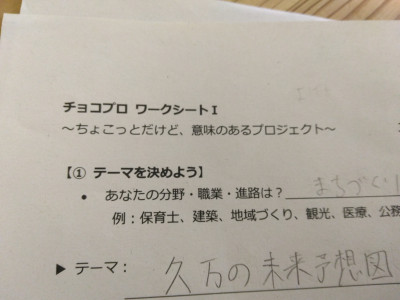 チョコプロ ワークシートⅠ
～ちょこっとだけど、意味のあるプロジェクト～
【① テーマを決めよう】
• あなたの分野・職業・進路は？ まちづくり
例：保育士、建築、地域づくり、観光、医療、公務
▶ テーマ： 久万の未来予想図